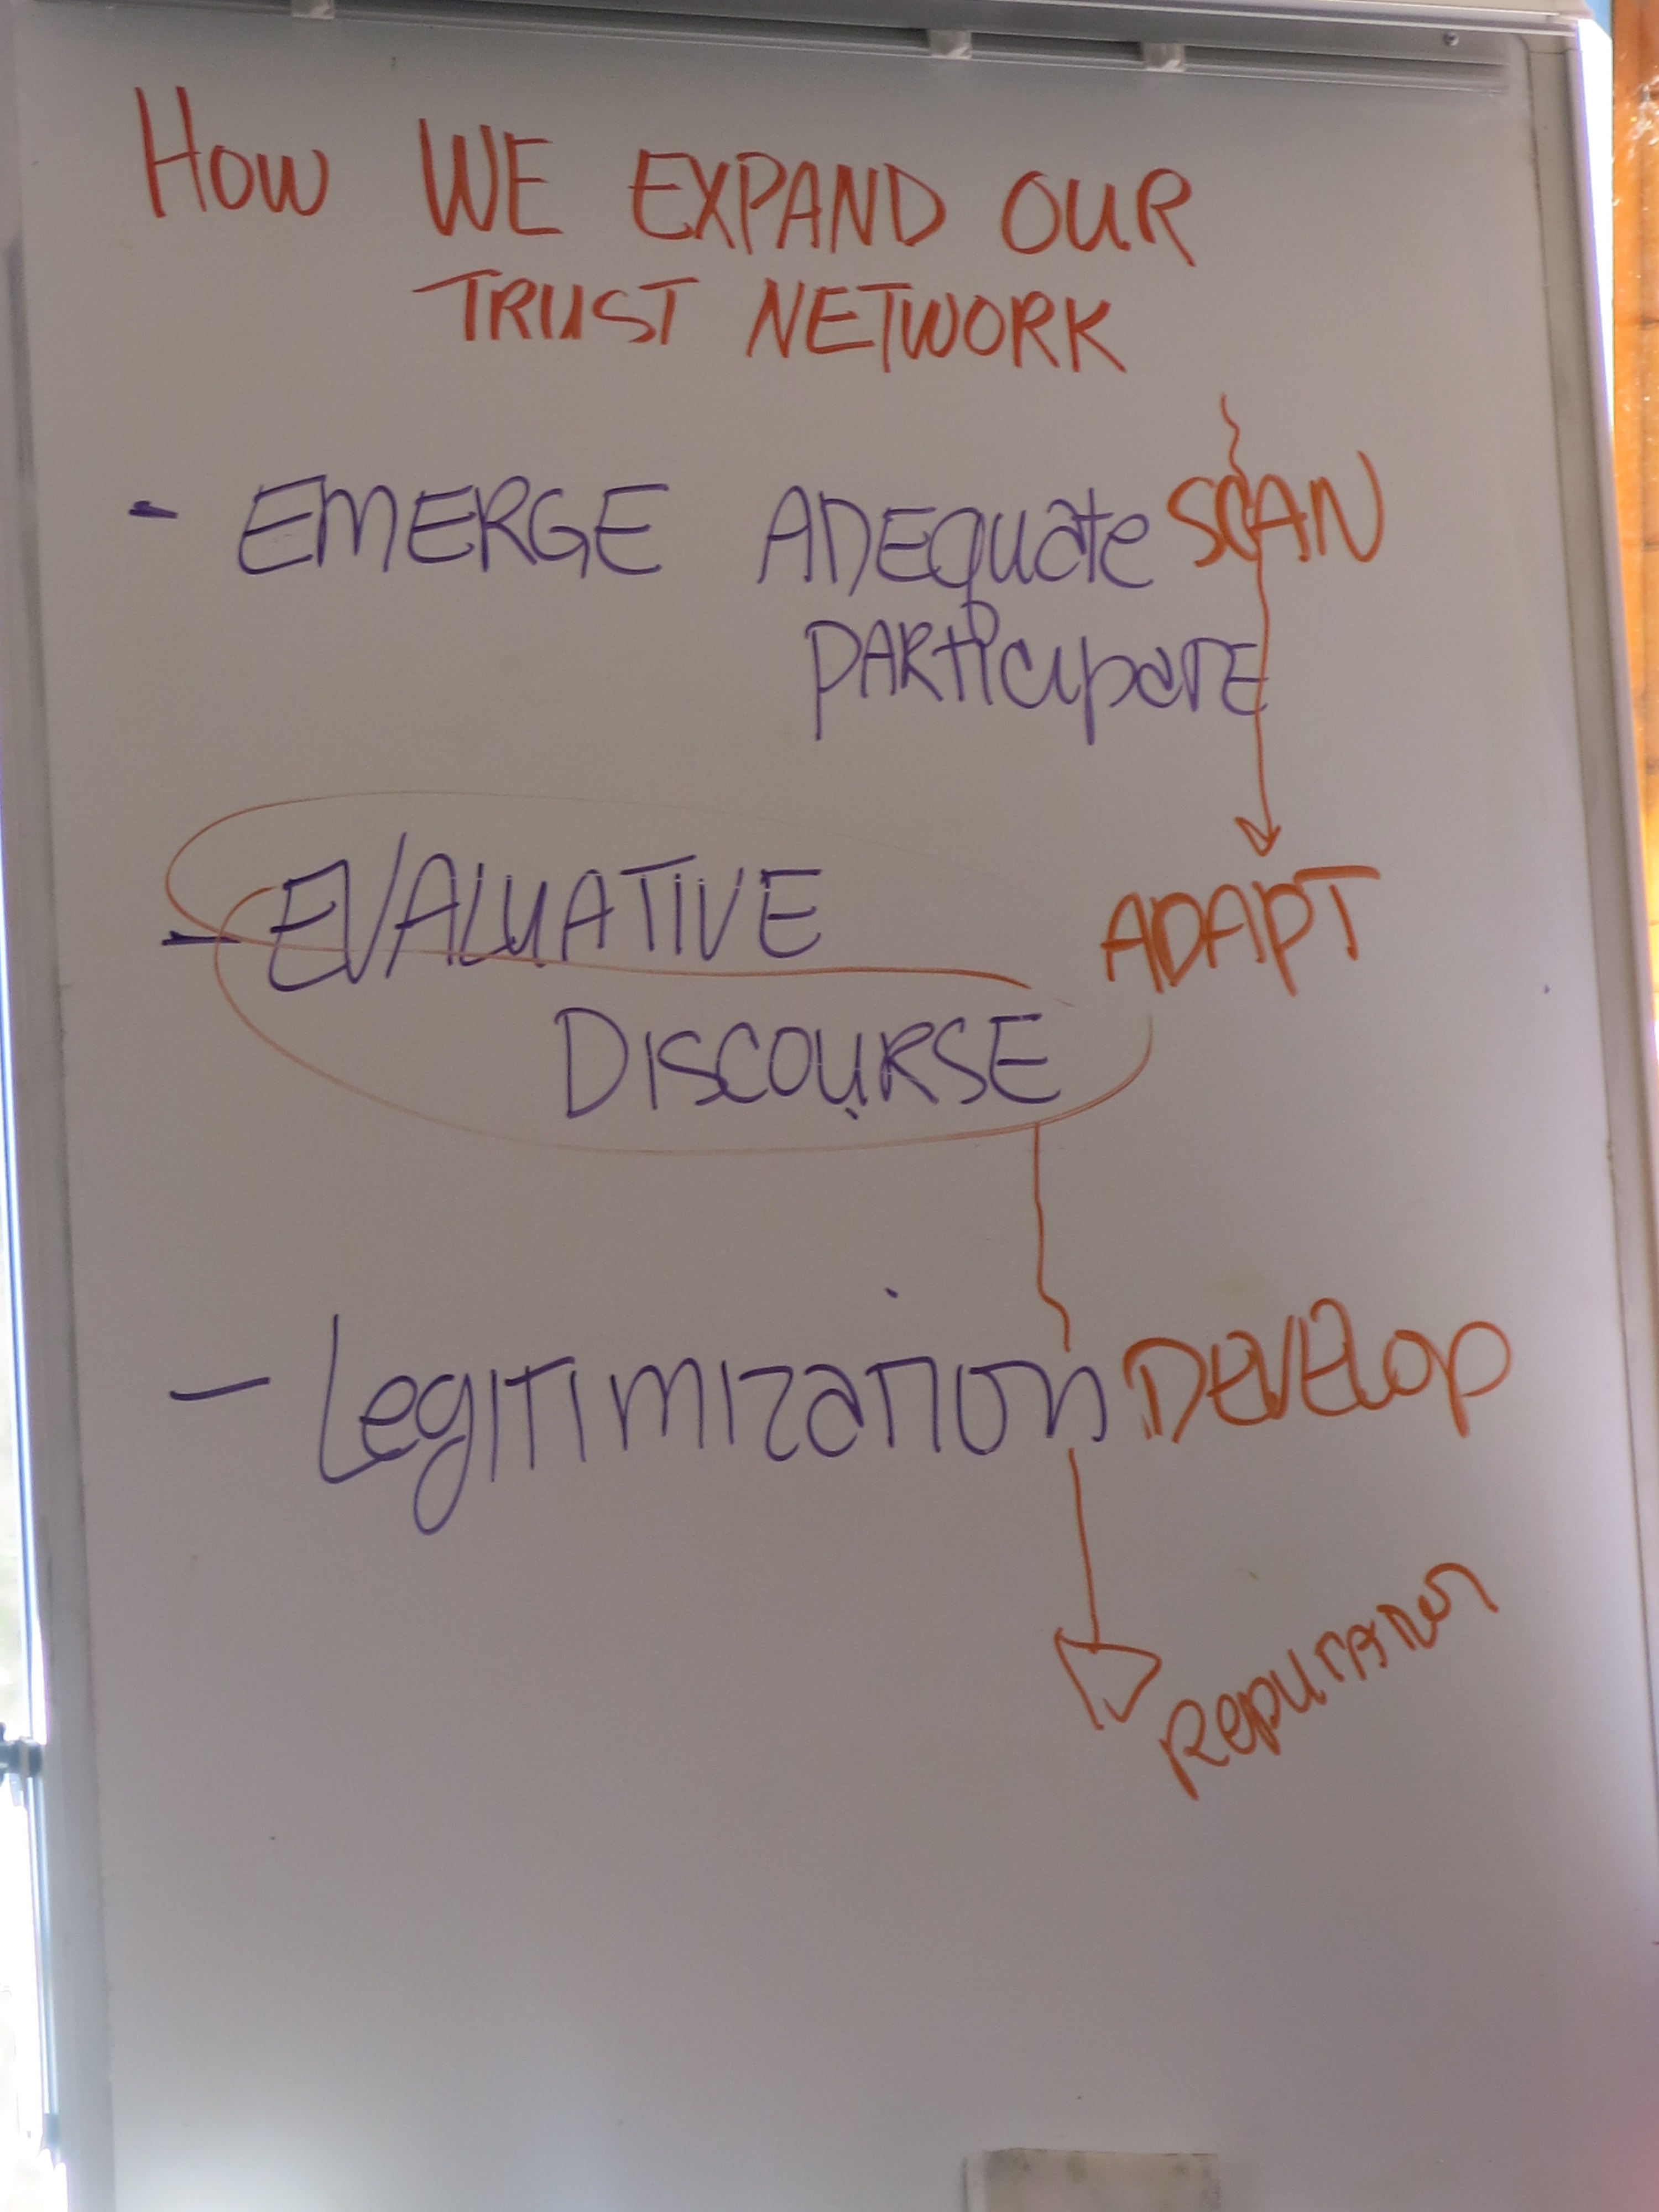 How WE EXPAND OUR
TRUST NETWORK
- EMERGE ADEquate SCAN
PARticipate
- EVALUATIVE ADAPT
DISCOURSE
- Legitimization DEVELOP
Reputation